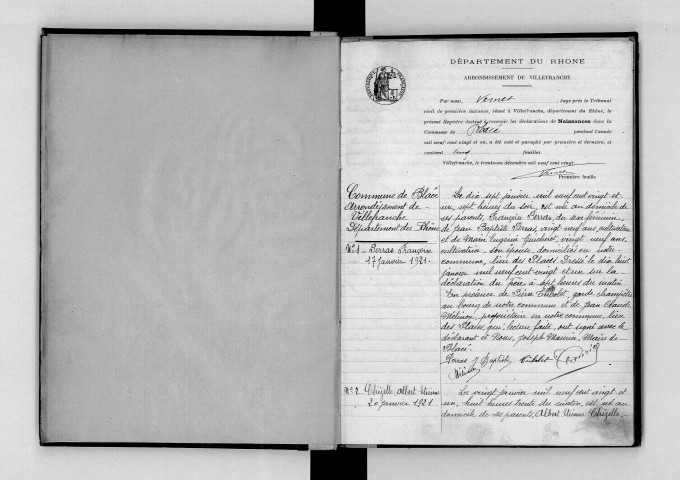 DÉPARTEMENT DU RHONE
ARRONDISSEMENT DE VILLEFRANCHE
Par nous, Vernet Juge près le Tribunal
civil de première instance, séant à Villefranche, département du Rhône, le
présent Registre destiné à recevoir les déclarations de Naissances dans la
Commune de Blacé pendant l'année
mil neuf cent vingt et un, a été coté et paraphé par première et dernière, et
contient feuilles.
Villefranche, le trente-un décembre mil neuf cent vingt.
Première feuille
Commune de Blacé
Arrondissement de
Villefranche
Département du Rhône
N° 1 Perras Françoise
17 Janvier 1921.
Le dix sept janvier mil neuf cent vingt et
un, sept heures du soir, est née au domicile de
ses parents, Françoise Perras, du sexe féminin,
de Jean Baptiste Perras, vingt-neuf ans, cultivateur
et de Marie Eugénie, vingt neuf ans,
cultivatrice, son épouse, domiciliés en notre
commune, lieu des Places. Dressé le dix huit
janvier mil neuf cent vingt et un sur la
déclaration du père, à sept heures du matin.
En présence de garde champêtre
au bourg de notre commune et de Jean Claude
Mélinon, propriétaire en notre commune, lieu
des Places, qui, lecture faite, ont signé avec le
déclarant et Nous, Joseph Maire de
Blacé.
Perras J Baptiste
N° 2 Albert
20 Janvier 1921
Le vingt janvier mil neuf cent vingt et
un, huit heures trente du matin, est né au
domicile de ses parents, Albert